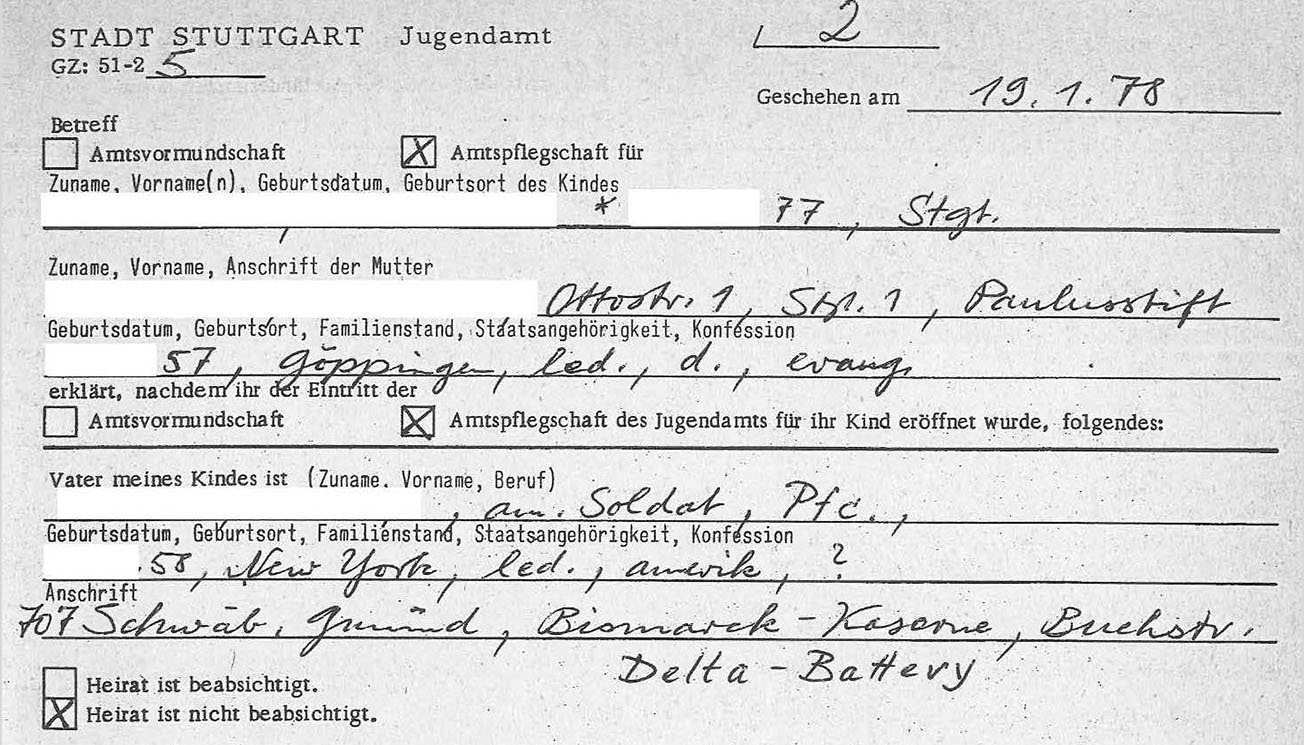 STADT STUTTGART Jugendamt
2
GZ: 51-2 5
Geschehen am 19.1.78
Betreff
Amtsvormundschaft X Amtspflegschaft für
Zuname, Vorname(n), Geburtsdatum, Geburtsort des Kindes
* 77, Stgt.
Zuname, Vorname, Anschrift der Mutter
Ottostr. 1, Stgt. 1, Paulusstift
Geburtsdatum, Geburtsort, Familienstand, Staatsangehörigkeit, Konfession
57, Göppingen, led., d., evang.
erklärt, nachdem ihr der Eintritt der
Amtsvormundschaft X Amtspflegschaft des Jugendamts für ihr Kind eröffnet wurde, folgendes:
Vater meines Kindes ist (Zuname, Vorname, Beruf)
, am. Soldat, Pfc.,
Geburtsdatum, Geburtsort, Familienstand, Staatsangehörigkeit, Konfession
.58, New York, led., amerik, ?
Anschrift
707 Schwäb. Gmünd, Bismarck-Kaserne, Buchstr.
Delta-Battery
Heirat ist beabsichtigt.
X Heirat ist nicht beabsichtigt.